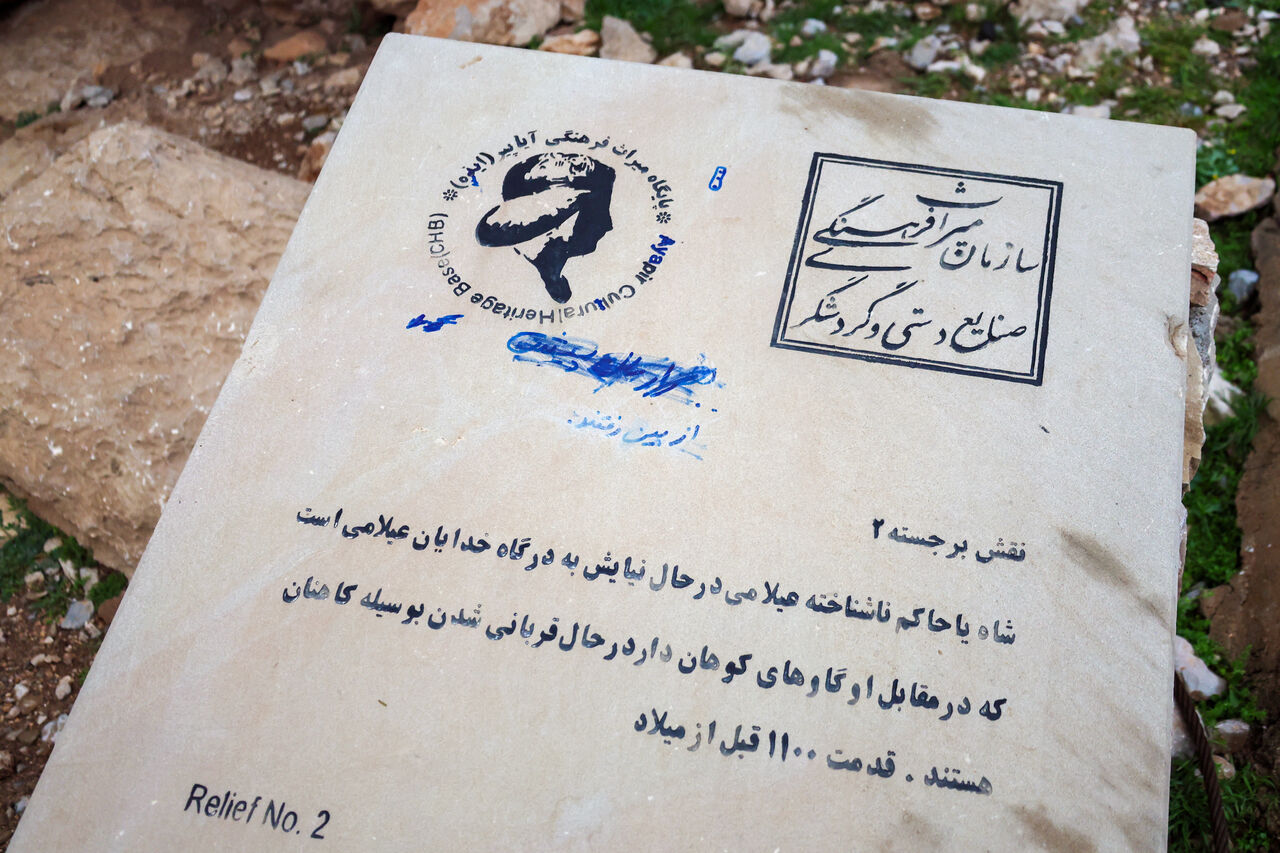 پایگاه میراث فرهنگی آیاپیر (ایذه)
Ayapir Cultural Heritage Base(CHB)
سازمان میراث فرهنگی
صنایع دستی و گردشگری
از بین رفتند.
نقش برجسته ۲
شاه یا حاکم ناشناخته عیلامی درحال نیایش به درگاه خدایان عیلامی است
که درمقابل او گاوهای کوهان دار درحال قربانی شدن بوسیله کاهنان
هستند . قدمت ۱۱۰۰ قبل از میلاد
Relief No. 2